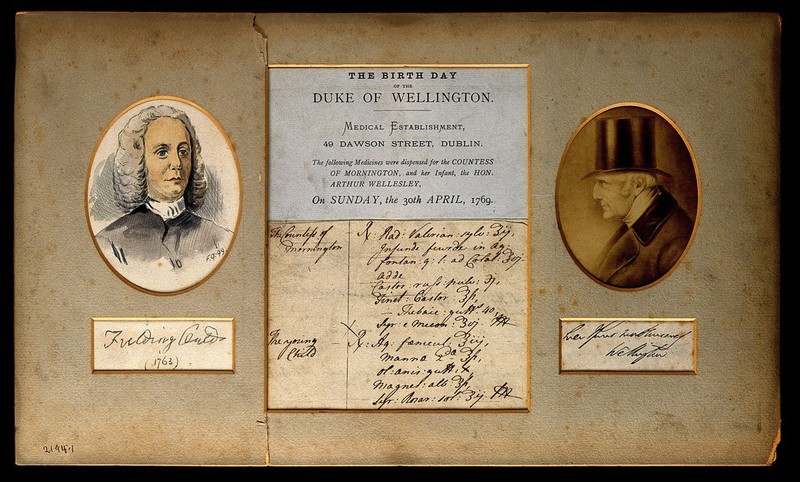 THE BIRTH DAY
OF THE
DUKE OF WELLINGTON.
MEDICAL ESTABLISHMENT,
49 DAWSON STREET, DUBLIN.
The following Medicines were dispensed for the COUNTESS
OF MORNINGTON, and her Infant, the HON.
ARTHUR WELLESLEY,
On SUNDAY, the 30th APRIL, 1769.
The Countess of
Mornington
℞: Rad: Valerian: sylv: Ʒij,
Infunde in aq:
fontan: q: s: ad Colat: Ʒvj
adde
Castor: russ: pulv: Ʒſ,
Tinct: Castor: Ʒſ,
Thebaic: gutt 40,
Syr: e Mecon: Ʒvj
The young
Child
℞: Aq: fœnicul: Ʒiij,
Manna Ʒſ,
ol: anis: gutt: x
Magnes: alb: Ʒſ,
Syr: Rosar: sol: Ʒij
F.G. 99
Fielding Oulds
(1763)
Wellington
21941